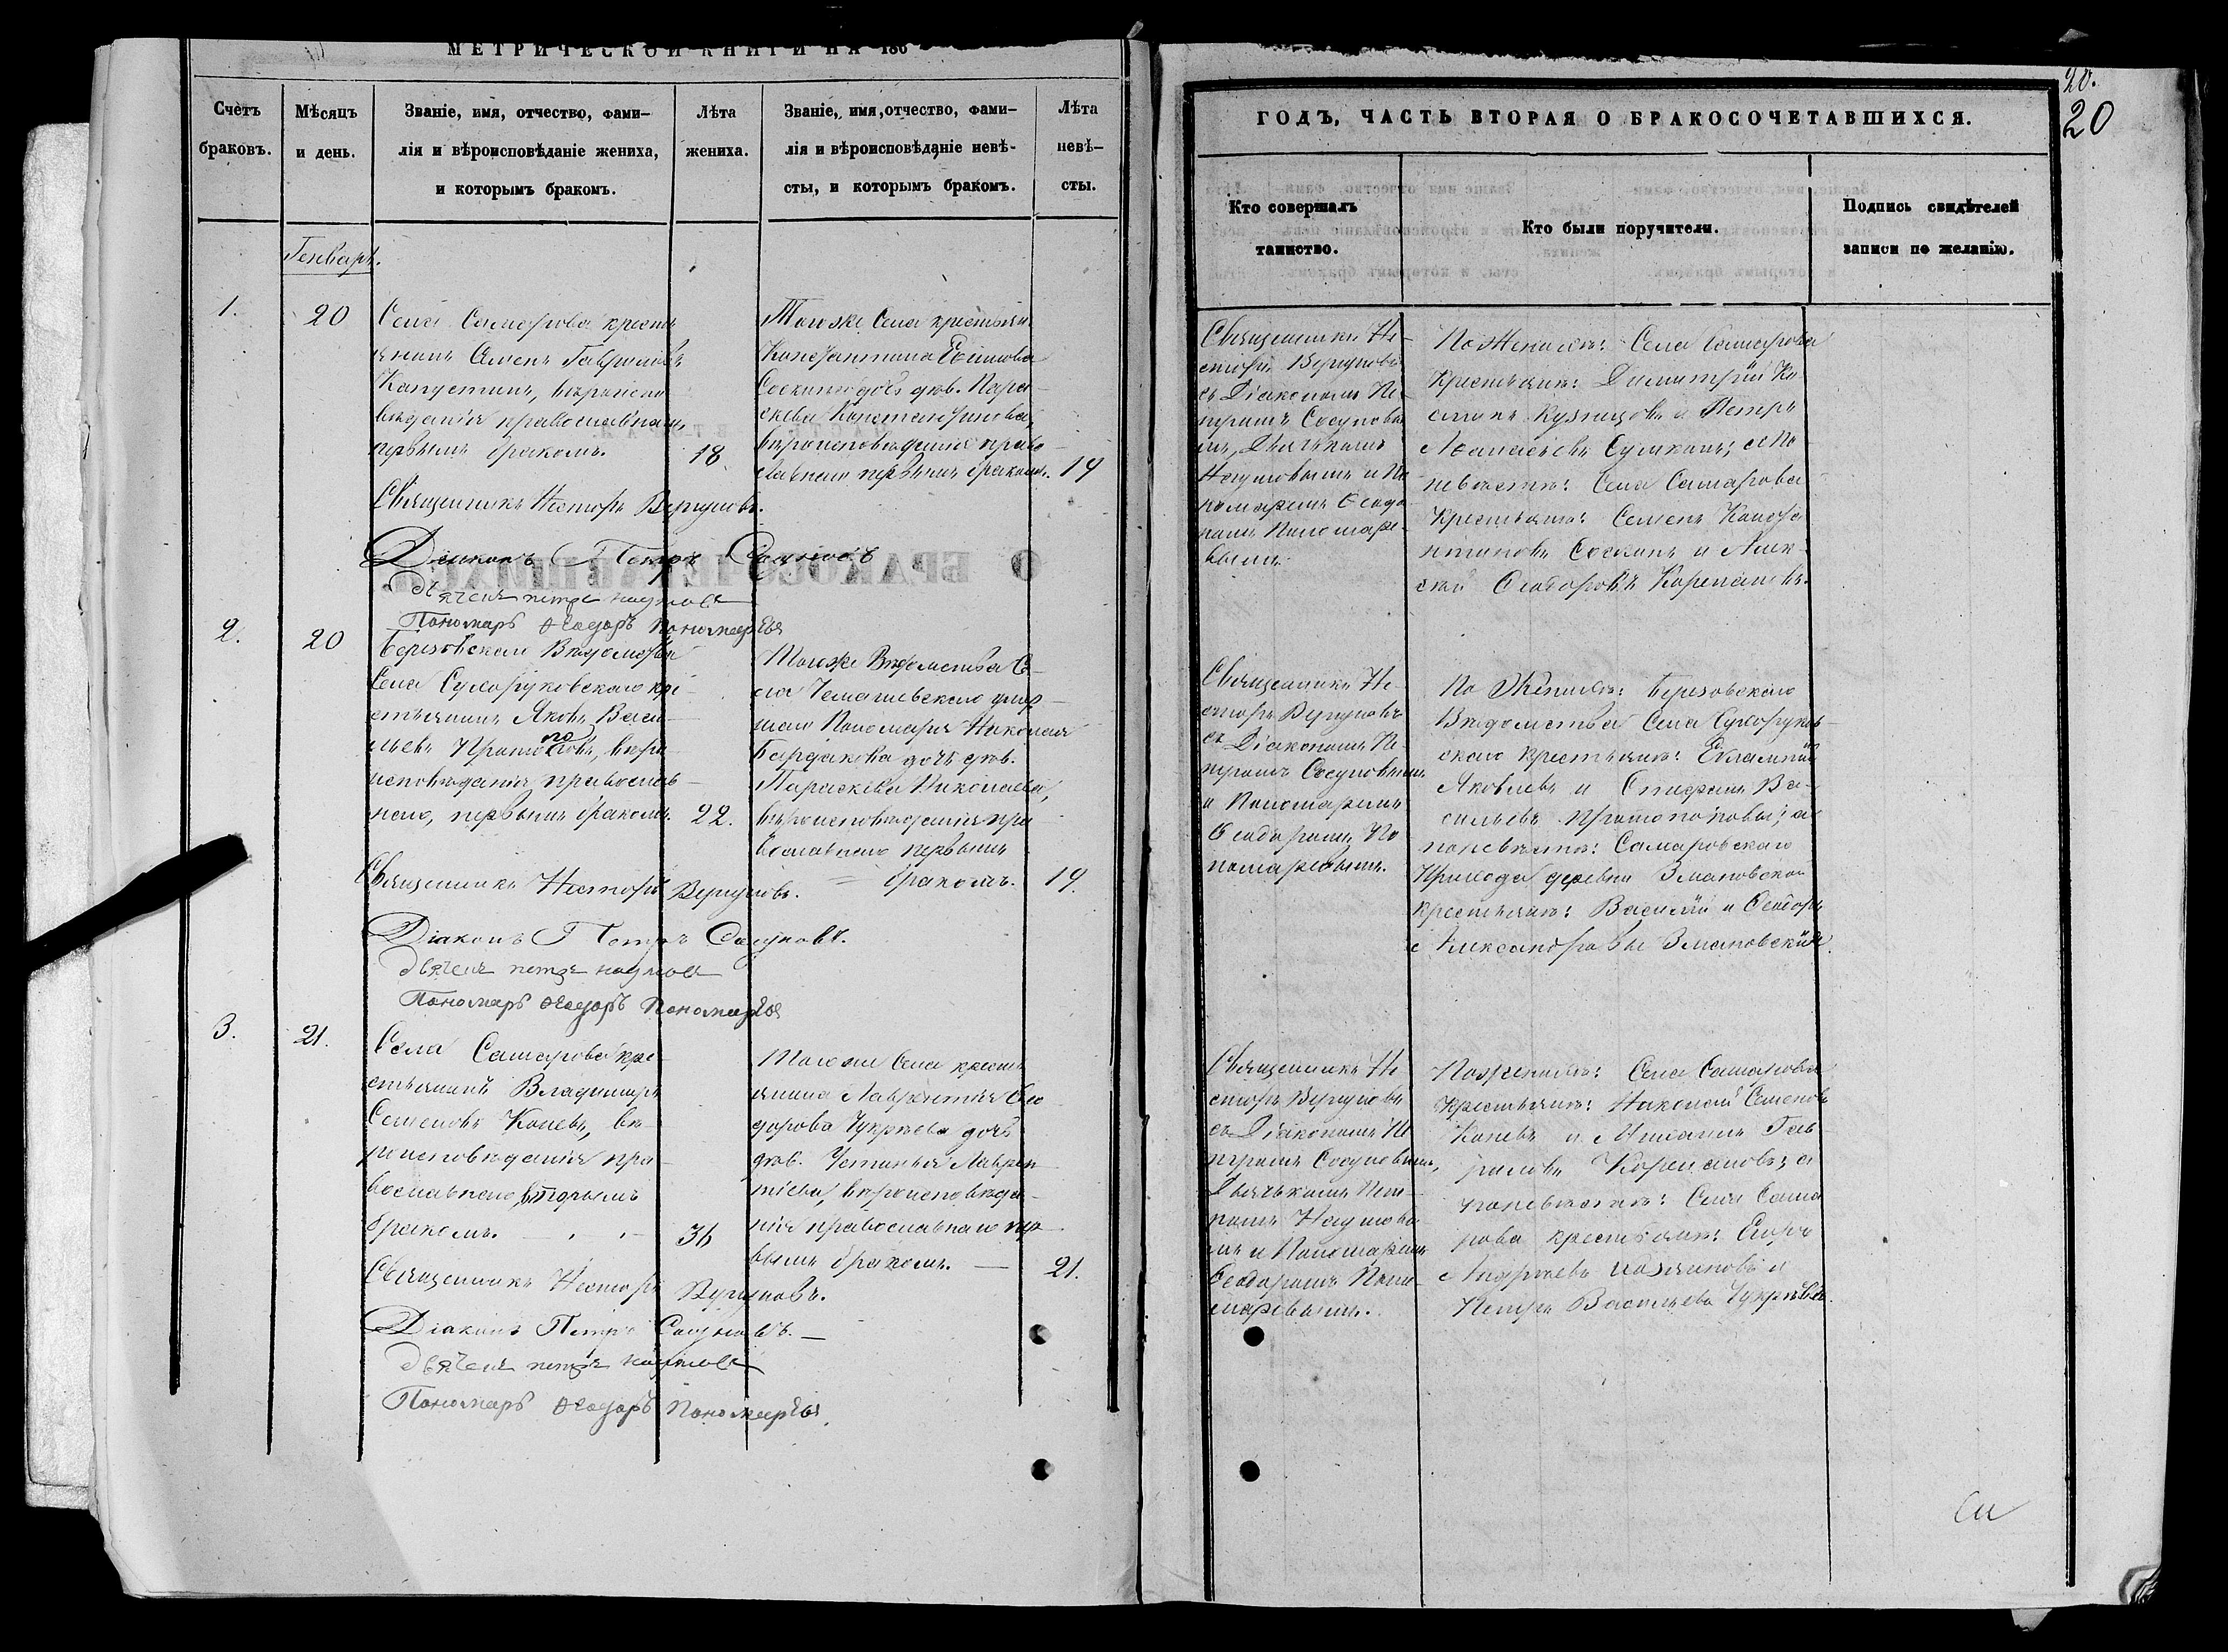 МЕТРИЧЕСКОЙ КНИГИ НА 186
Счетъ
браковъ.
Мѣсяцъ
и день.
Званіе, имя, отчество, фами-
лія и вѣроисповѣданіе жениха,
и которымъ бракомъ.
Лѣта
жениха.
Званіе, имя, отчество, фами-
лія и вѣроисповѣданіе невѣ-
сты, и которымъ бракомъ.
Лѣта
невѣ-
сты.
Генварь.
1.
20
Села Самарова кресть
янинъ Семенъ Гавриловъ
Капустинъ, вѣроиспо
вѣданія православнаго,
первымъ бракомъ.
18.
Тогоже Села крестьян.
Константина Евсиова
Соскина дочь дѣв. Пара-
скева Константинова,
вѣроисповѣданія право
славнаго первымъ бракомъ.
19
Священникъ Несторъ Вергуновъ.
Діаконъ Петръ Сосуновъ
Дьячекъ петръ наумовъ
Пономарь Ѳеодоръ Пономаревъ
2.
20
Березовскаго Вѣдомства
Села Сухоруковскаго кре-
стьянинъ Яковъ Васи-
льевъ Протопоповъ, вѣро-
исповѣданія православ-
наго, первымъ бракомъ.
22.
Тогоже Вѣдомства Се-
ла Чемашевскаго умер-
шаго Пономаря Николая
Бардакова дочь дѣв.
Параскева Николаева,
вѣроисповѣданія пра
вославнаго первымъ
= бракомъ.
19.
Священникъ Несторъ Вергуновъ.
Діаконъ Петръ Сосуновъ.
Дьячекъ петръ наумовъ
Пономарь Ѳеодоръ Пономаревъ
3.
21.
Села Самарова кре-
стьянинъ Владимиръ
Семеновъ Коневъ, вѣ-
роисповѣданія пра-
вославнаго, вторымъ
бракомъ.
36
Тогоже Села кресть
янина Лаврентія Ѳео
дорова Чукреева дочь
дѣв. Устинья Лаврен
тіева, вѣроисповѣда-
нія православнаго пер
вымъ бракомъ. —
21.
Священникъ Несторъ Вергуновъ.
Діаконъ Петръ Сосуновъ. —
Дьячекъ петръ наумовъ
Пономарь Ѳеодоръ Пономаревъ.
20.
20
ГОДЪ, ЧАСТЬ ВТОРАЯ О БРАКОСОЧЕТАВШИХСЯ.
Кто совершалъ
таинство.
Кто были поручители.
Подпись свидѣтелей
записи по желанію.
Священникъ Не-
сторъ Вергуновъ
съ Діакономъ Пе-
тромъ Сосуновы
мъ, Дьячкомъ
Наумовымъ и По
номаремъ Ѳеодо
ромъ Пономаре-
вымъ.
По Женихѣ: Села Самарова
Крестьяне: Димитрій Ко-
Кузнецовъ и Петръ
Афанасьевъ Сумкинъ; а По
невѣстѣ: Села Самарова
Крестьяне: Семенъ Конста
нтиновъ Соскинъ и Алек-
сѣй Ѳеодоровъ Корепановъ.
Священникъ Не-
сторъ Вергуновъ
съ Діакономъ Пе-
тромъ Сосуновымъ
и Пономаремъ
Ѳеодоромъ По
номаревымъ.
По Женихѣ: Березовскаго
Вѣдомства Села Сухоруков-
скаго крестьяне: Евлампій
Яковлевъ и Стефанъ Ва-
сильевъ Протопоповы; а
поневѣстѣ: Самаровскаго
Прихода деревни Змановской
крестьяне: Василій и Ѳеодоръ
Александровы Змановскіе.
Священникъ Не
сторъ Вергуновъ
съ Діакономъ Пе
тромъ Сосуновымъ,
Дьячкомъ Пет-
ромъ Наумовы
мъ и Пономаремъ
Ѳеодоромъ Поно-
маревымъ.
Поженихѣ: Села Самарова
крестьяне: Николай Семеновъ
Коневъ и Михаилъ Гав-
риловъ Корепановъ; а
поневѣстѣ: Села Сама
рова крестьяне: Егоръ
Андреевъ и
Петръ Васильевъ Чукреевъ.